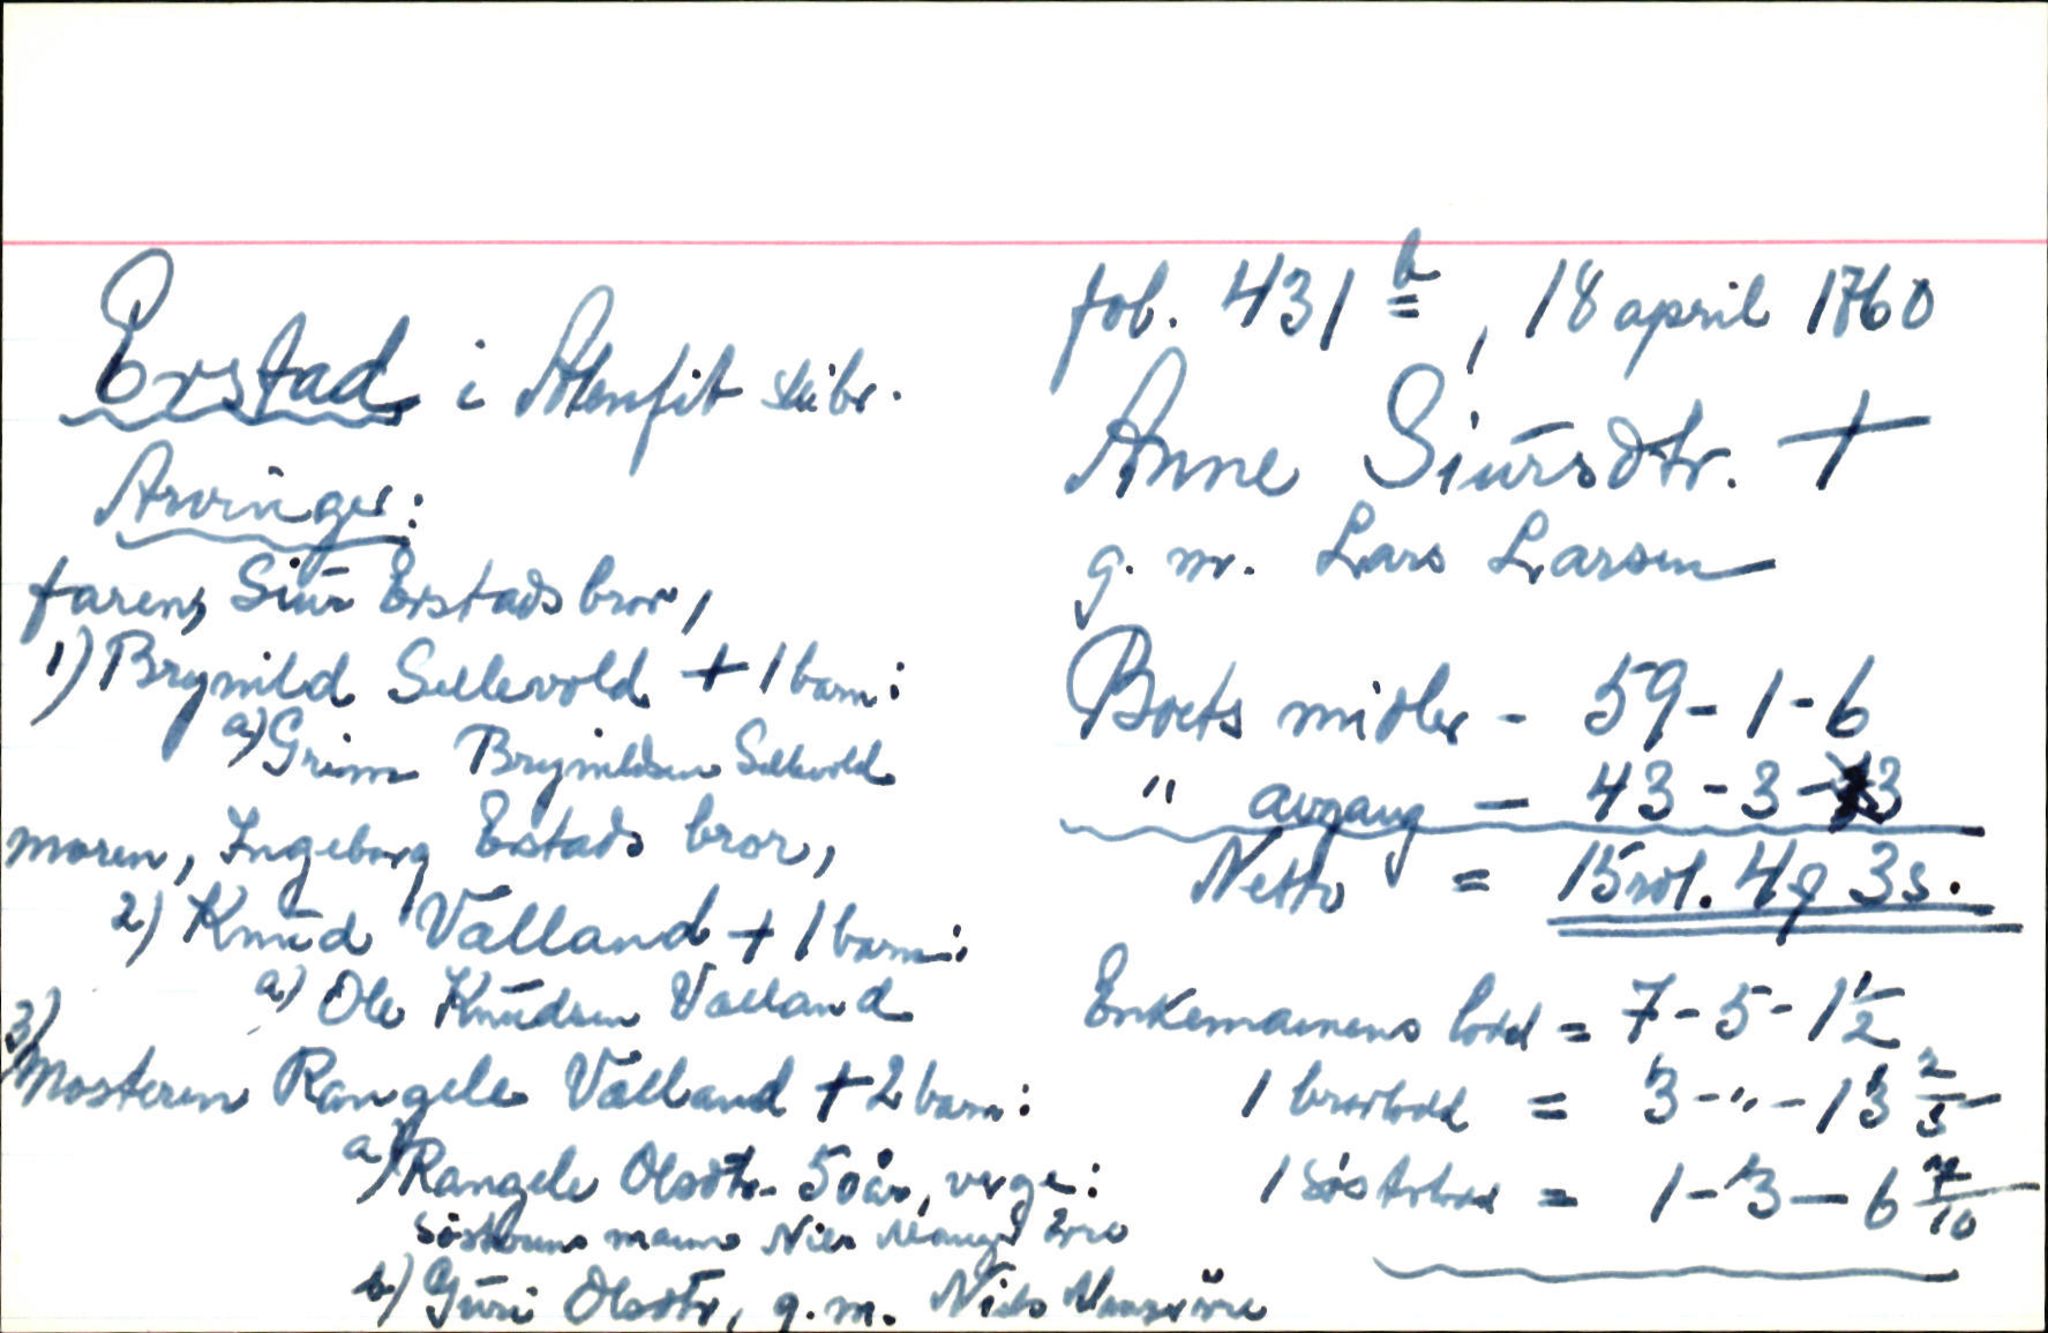 fol. 431 b, 18 april 1760
Erstad i Alenfit skibr.
Anne Siursdtr. +
Arvinger:
g. m. Lars Larsen
faren, Siur Erstads bror,
1) Brynild Sellevold + 1 barn:
a) Grim Brynildsen Sellevold
moren, Ingeborg Erstads bror,
2) Knud Valland + 1 barn:
a) Ole Knudsen Valland
3) Mosteren Rangele Valland + 2 barn:
a) Rangele Olsdtr. 50 år, verge:
søsterens mann Nils
b) Guri Olsdtr, g.m. Nils
Boets midler - 59 - 1 - 6
" avgang - 43 - 3 - 3
Netto = 15 rdl. 4 q 3 s.
Enkemannens lodd = 7 - 5 - 1 1/2
1 brorlodd = 3 - " - 13 2/5
1 søsterlodd = 1 - 3 - 6 7/10